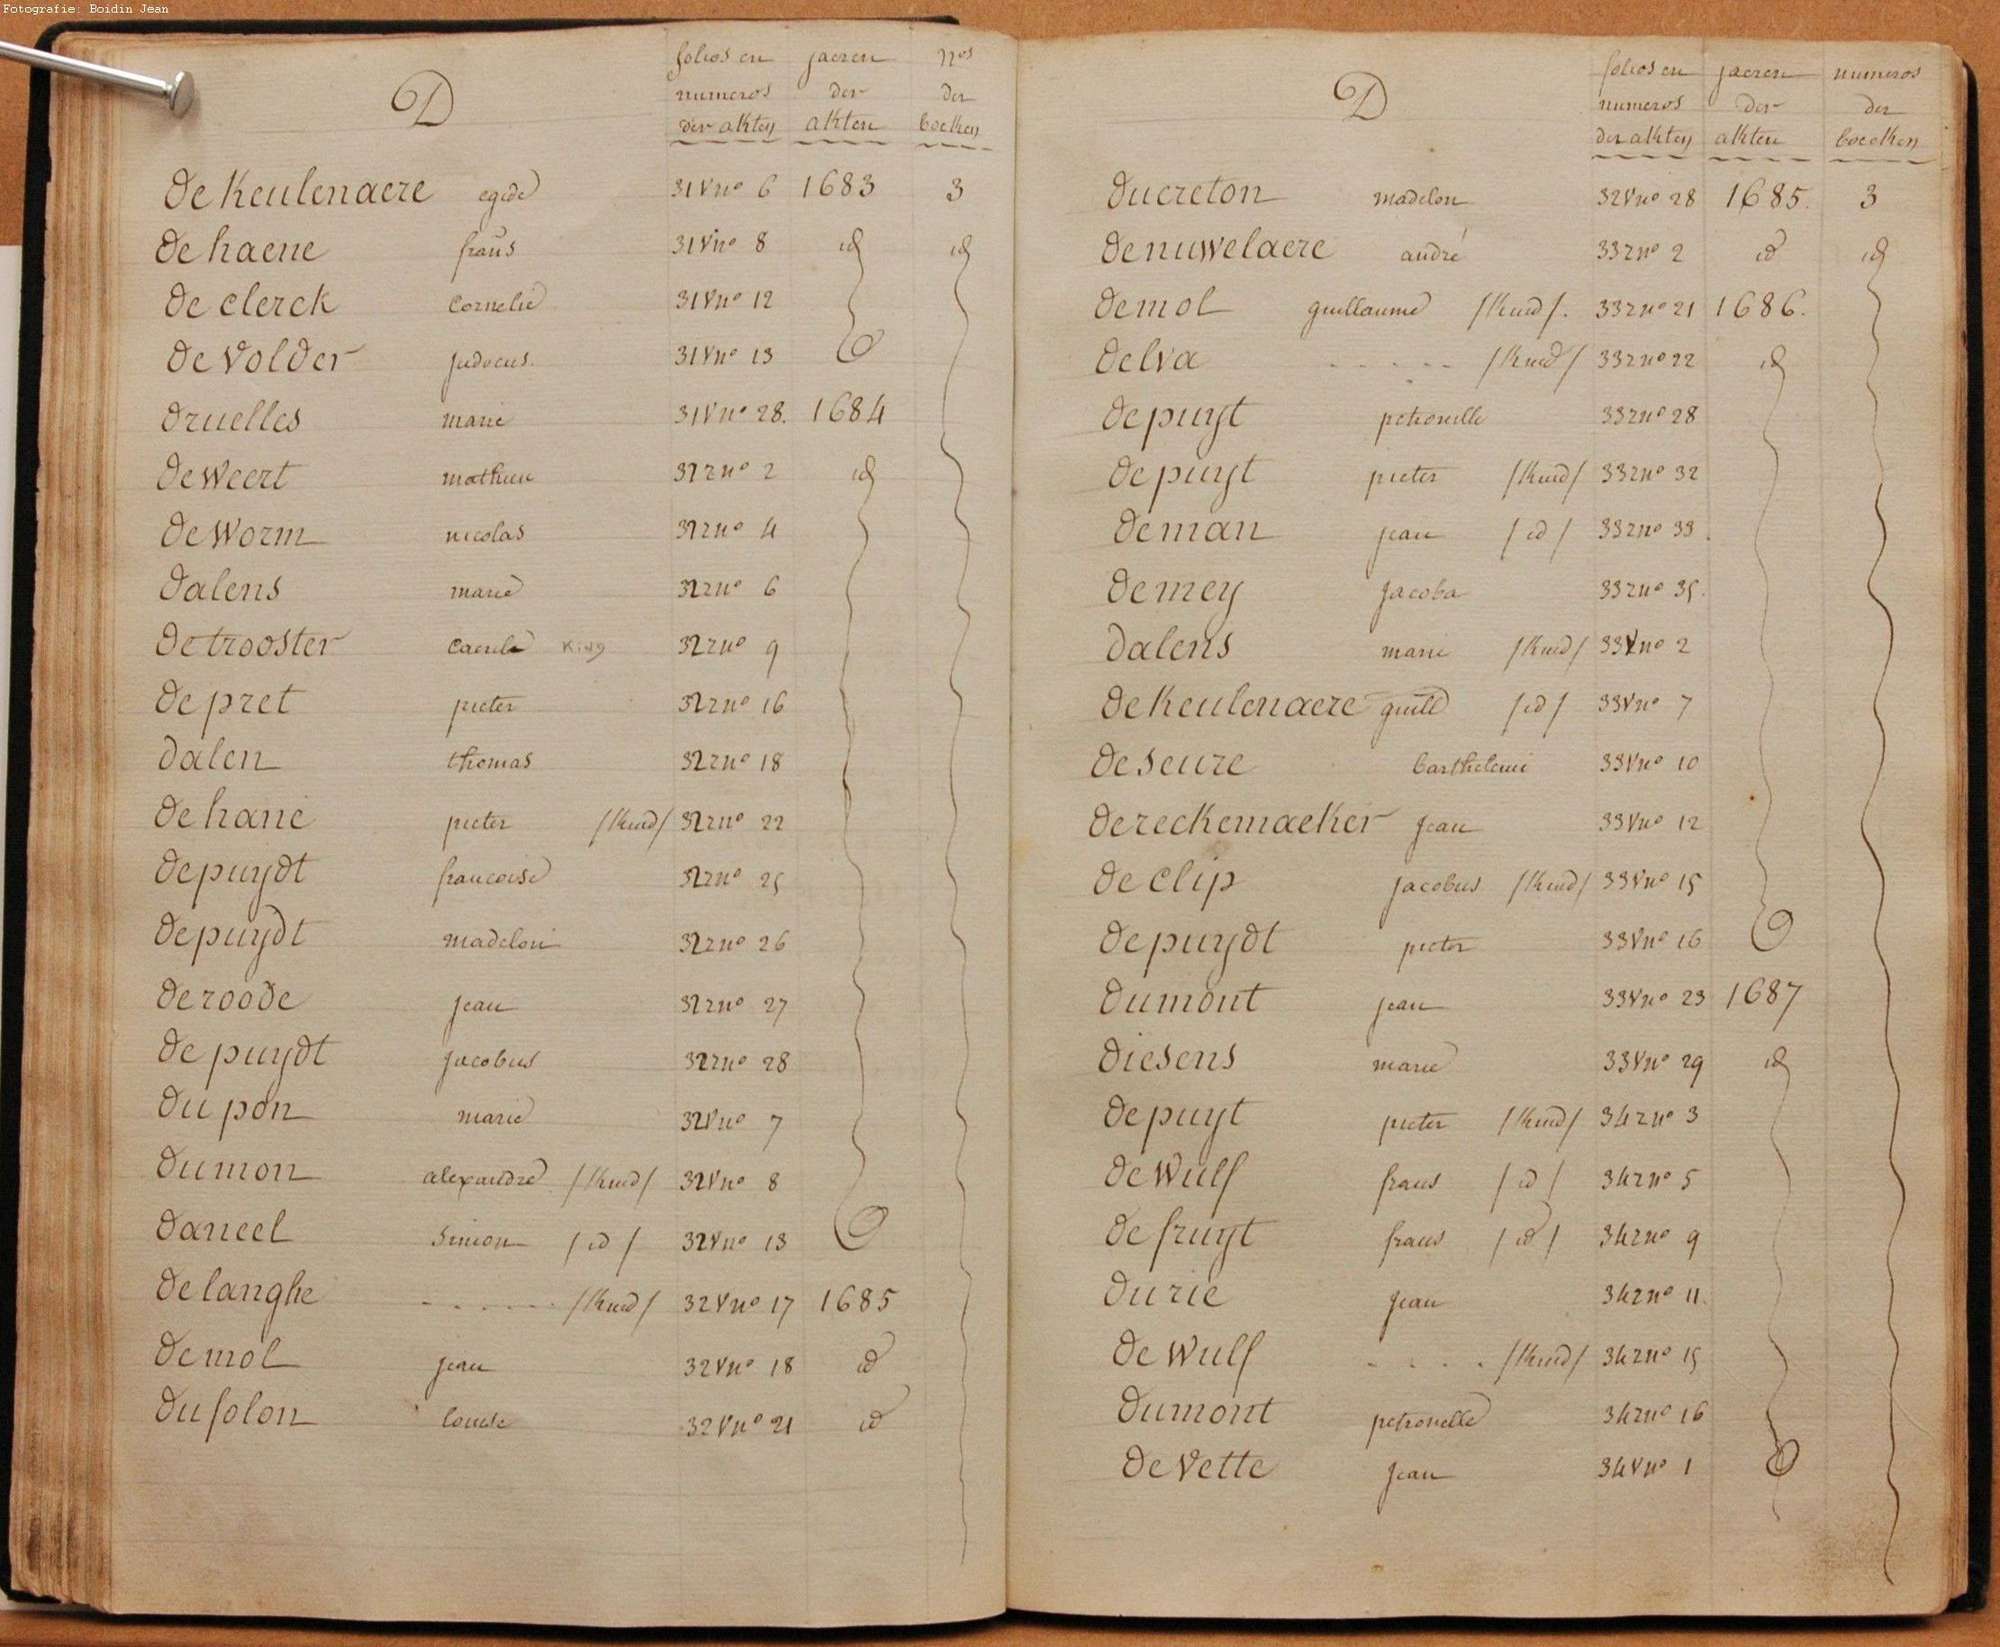 Fotografie: Boidin Jean
D
folios en jaeren nos
numeros der der
der akten akten boeken
De Keulenaere egide 31 V no 6 1683 3
De haene frans 31 V no 8 id id
De clerck Cornelie 31 V no 12
De Volder judocus. 31 V no 13
Druelles marie 31 V no 28. 1684
De Weert mathieu 32 r no 2 id
De Worm nicolas 32 r no 4
Dalens marie 32 r no 6
De trooster Caerel King 32 r no 9
De pret pieter 32 r no 16
Dalen thomas 32 r no 18
De hane pieter /Kind/ 32 r no 22
De puydt francoise 32 r no 25
De puydt madelon 32 r no 26
De roode jean 32 r no 27
De puydt jacobus 32 r no 28
Du pon marie 32 V no 7
Dumon alexandre /Kind/ 32 V no 8
Daneel Simon /id/ 32 V no 13
De langhe ...... /Kind/ 32 V no 17 1685
De mol jean 32 V no 18 id
Du folon louise 32 V no 21 id
D
folios en jaeren numeros
numeros der der
der akten akten boeken
Ducreton madelon 32 V no 28 1685. 3
De nuwelaere andré 33 r no 2 id id
De mol guillaume /Kind/. 33 r no 21 1686.
Delva ..... /Kind/ 33 r no 22 id
De puyt petronille 33 r no 28
De puyt pieter /Kind/ 33 r no 32
De man jean /id/ 33 r no 33
De mey Jacoba 33 r no 35.
Dalens marie /Kind/ 33 V no 2
De Keulenaere guille /id/ 33 V no 7
De seure barthelemi 33 V no 10
De reckemaeker Jean 33 V no 12
De clip jacobus /Kind/ 33 V no 15
De puydt pieter 33 V no 16
Dumont jean 33 V no 23 1687
Diesens marie 33 V no 29 id
De puyt pieter /Kind/ 34 r no 3
De Wulf frans /id/ 34 r no 5
De fruyt frans /id/ 34 r no 9
Durie jean 34 r no 11.
De Wulf .... /Kind/ 34 r no 15
Dumont petronelle 34 r no 16
De Vette jean 34 V no 1